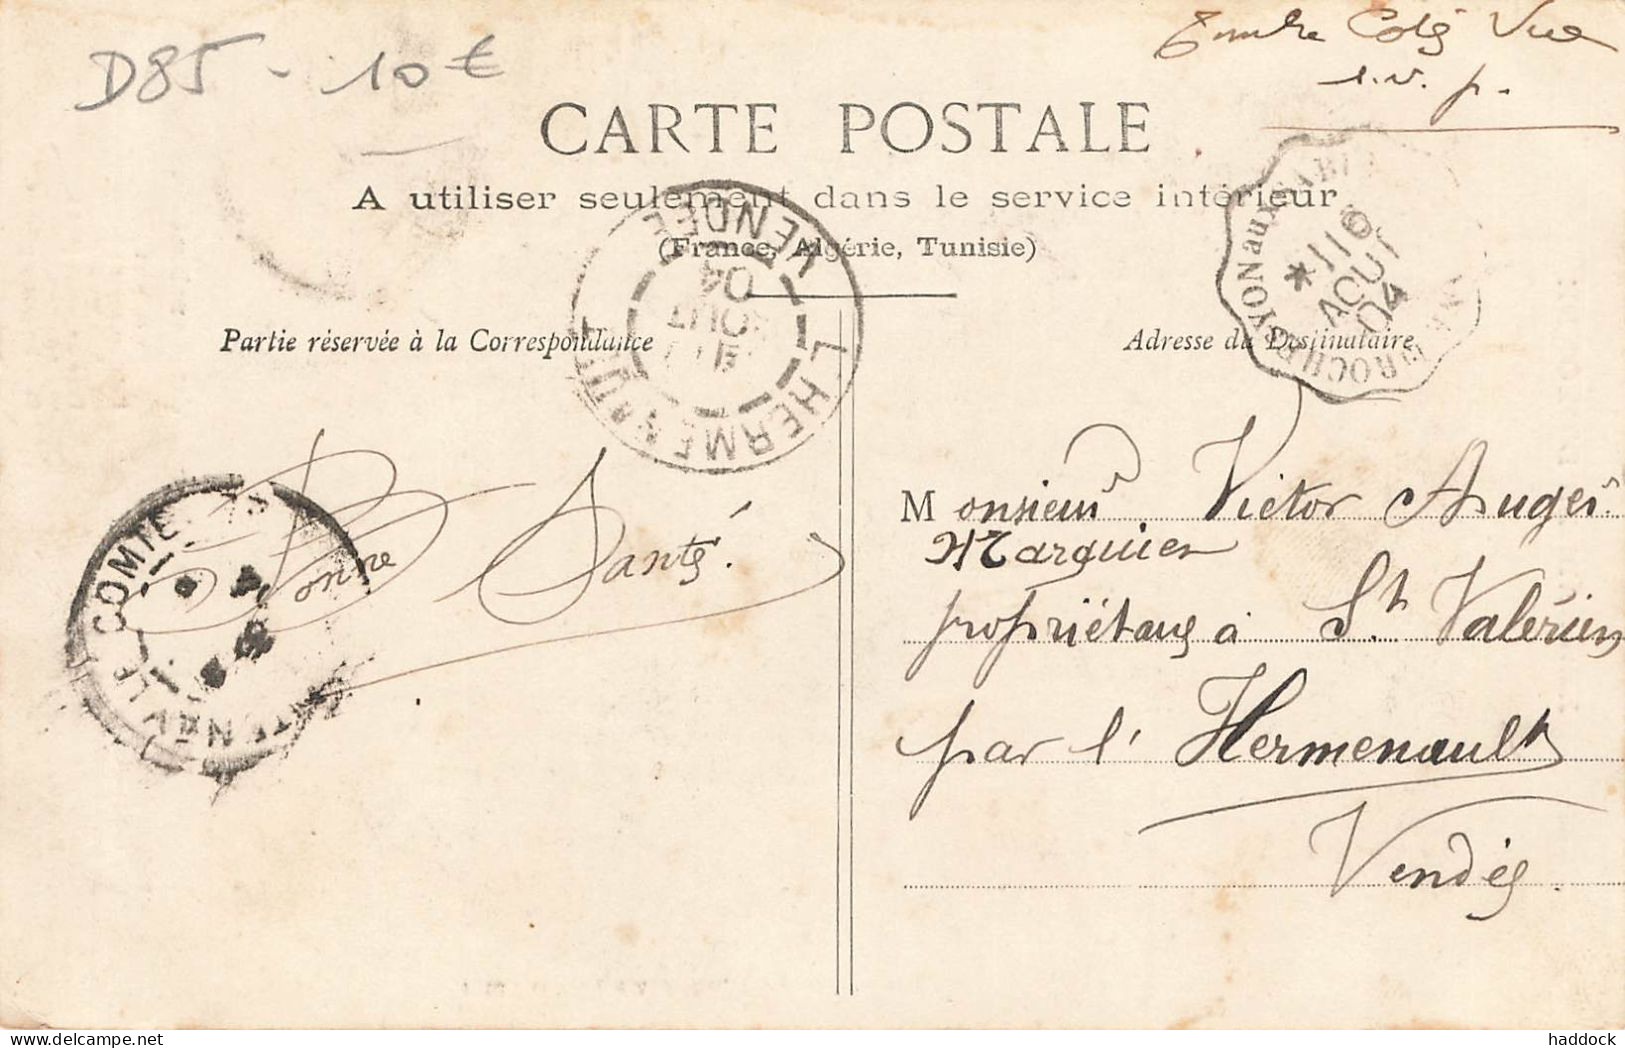 D85 - 10€
Timbre Coté Vue
s.v.p.
CARTE POSTALE
A utiliser seulement dans le service intérieur
(France, Algérie, Tunisie)
Partie réservée à la Correspondance
Adresse du Destinataire
L'HERMENAULT VENDÉE
AOUT
04
ROCHE S YON aux SABLES
* 11 6
AOUT
04
Bonne Santé.
Monsieur Victor Auger
proprietaire à St Valérien
par l'Hermenault
Vendée.
haddock